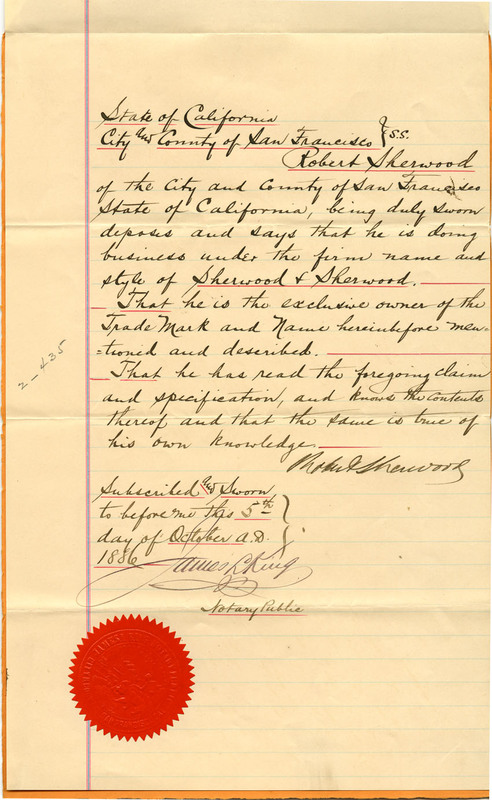 State of California
City and County of San Francisco } S.S.
Robert Sherwood
of the City and County of San Francisco
State of California, being duly sworn
deposes and says that he is doing
business under the firm name and
style of Sherwood & Sherwood.
That he is the exclusive owner of the
Trade Mark and Name hereinbefore men-
-tioned and described.
That he has read the foregoing claim
and specification, and knows the contents
thereof and that the same is true of
his own knowledge.
Robert Sherwood
2-435
Subscribed and Sworn
to before me this 5th
day of October A.D.
1886
James L. King
Notary Public